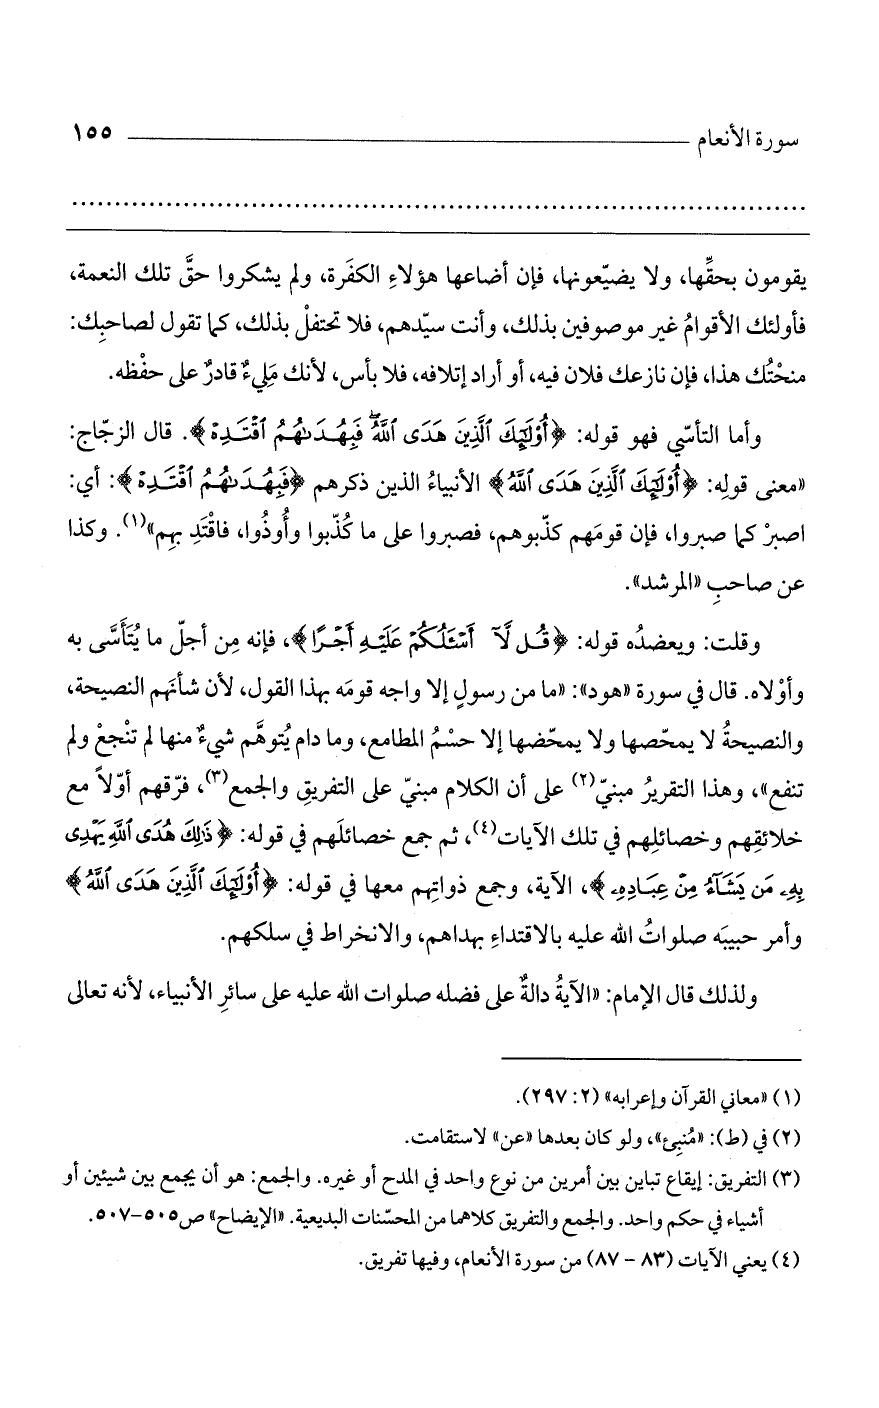 سورة الأنعام ١٥٥
يقومون بحقِّها، ولا يضيّعونها، فإن أضاعها هؤلاءِ الكفَرة، ولم يشكروا حقَّ تلك النعمة،
فأولئك الأقوامُ غير موصوفين بذلك، وأنت سيّدهم، فلا تحتفلْ بذلك، كما تقول لصاحبِك:
منحْتُك هذا، فإن نازعك فلان فيه، أو أراد إتلافه، فلا بأس، لأنك مَلِيءٌ قادرٌ على حفْظه.
وأما التأسّي فهو قوله: ﴿أُوْلَٰٓئِكَ ٱلَّذِينَ هَدَى ٱللَّهُ ۖ فَبِهُدَىٰهُمُ ٱقْتَدِهْ﴾. قال الزجّاج:
«معنى قولِه: ﴿أُوْلَٰٓئِكَ ٱلَّذِينَ هَدَى ٱللَّهُ﴾ الأنبياءُ الذين ذكرهم ﴿فَبِهُدَىٰهُمُ ٱقْتَدِهْ﴾: أي:
اصبرْ كما صبروا، فإن قومَهم كذّبوهم، فصبروا على ما كُذّبوا وأُوذُوا، فاقْتَدِ بهِم»(١). وكذا
عن صاحبِ «المرشد».
وقلت: ويعضدُه قوله: ﴿قُل لَّآ أَسْـَٔلُكُمْ عَلَيْهِ أَجْرًا﴾، فإنه مِن أجلّ ما يُتَأَسَّى به
وأوْلاه. قال في سورة «هود»: «ما من رسولٍ إلا واجه قومَه بهذا القول، لأن شأنَهم النصيحة،
والنصيحةُ لا يمحّصها ولا يمحّضها إلا حسْمُ المطامع، وما دام يُتوهَّم شيءٌ منها لم تنْجعْ ولم
تنفع»، وهذا التقريرُ مبنيّ(٢) على أن الكلام مبنيّ على التفريقِ والجمع(٣)، فرّقهم أوّلاً مع
خلائقِهم وخصائلِهم في تلك الآيات(٤)، ثم جمع خصائلَهم في قوله: ﴿ذَٰلِكَ هُدَى ٱللَّهِ يَهْدِى
بِهِۦ مَن يَشَآءُ مِنْ عِبَادِهِۦ﴾، الآية، وجمع ذواتِهم معها في قوله: ﴿أُوْلَٰٓئِكَ ٱلَّذِينَ هَدَى ٱللَّهُ﴾
وأمر حبيبَه صلواتُ الله عليه بالاقتداءِ بهداهم، والانخراط في سلكهم.
ولذلك قال الإمام: «الآيةُ دالةٌ على فضله صلوات الله عليه على سائرِ الأنبياء، لأنه تعالى
(١) «معاني القرآن وإعرابه» (٢: ٢٩٧).
(٢) في (ط): «مُنبِئ»، ولو كان بعدها «عن» لاستقامت.
(٣) التفريق: إيقاع تباين بين أمرين من نوع واحد في المدح أو غيره. والجمع: هو أن يجمع بين شيئين أو
أشياء في حكم واحد. والجمع والتفريق كلاهما من المحسّنات البديعية. «الإيضاح» ص٥٠٥-٥٠٧.
(٤) يعني الآيات (٨٣ - ٨٧) من سورة الأنعام، وفيها تفريق.